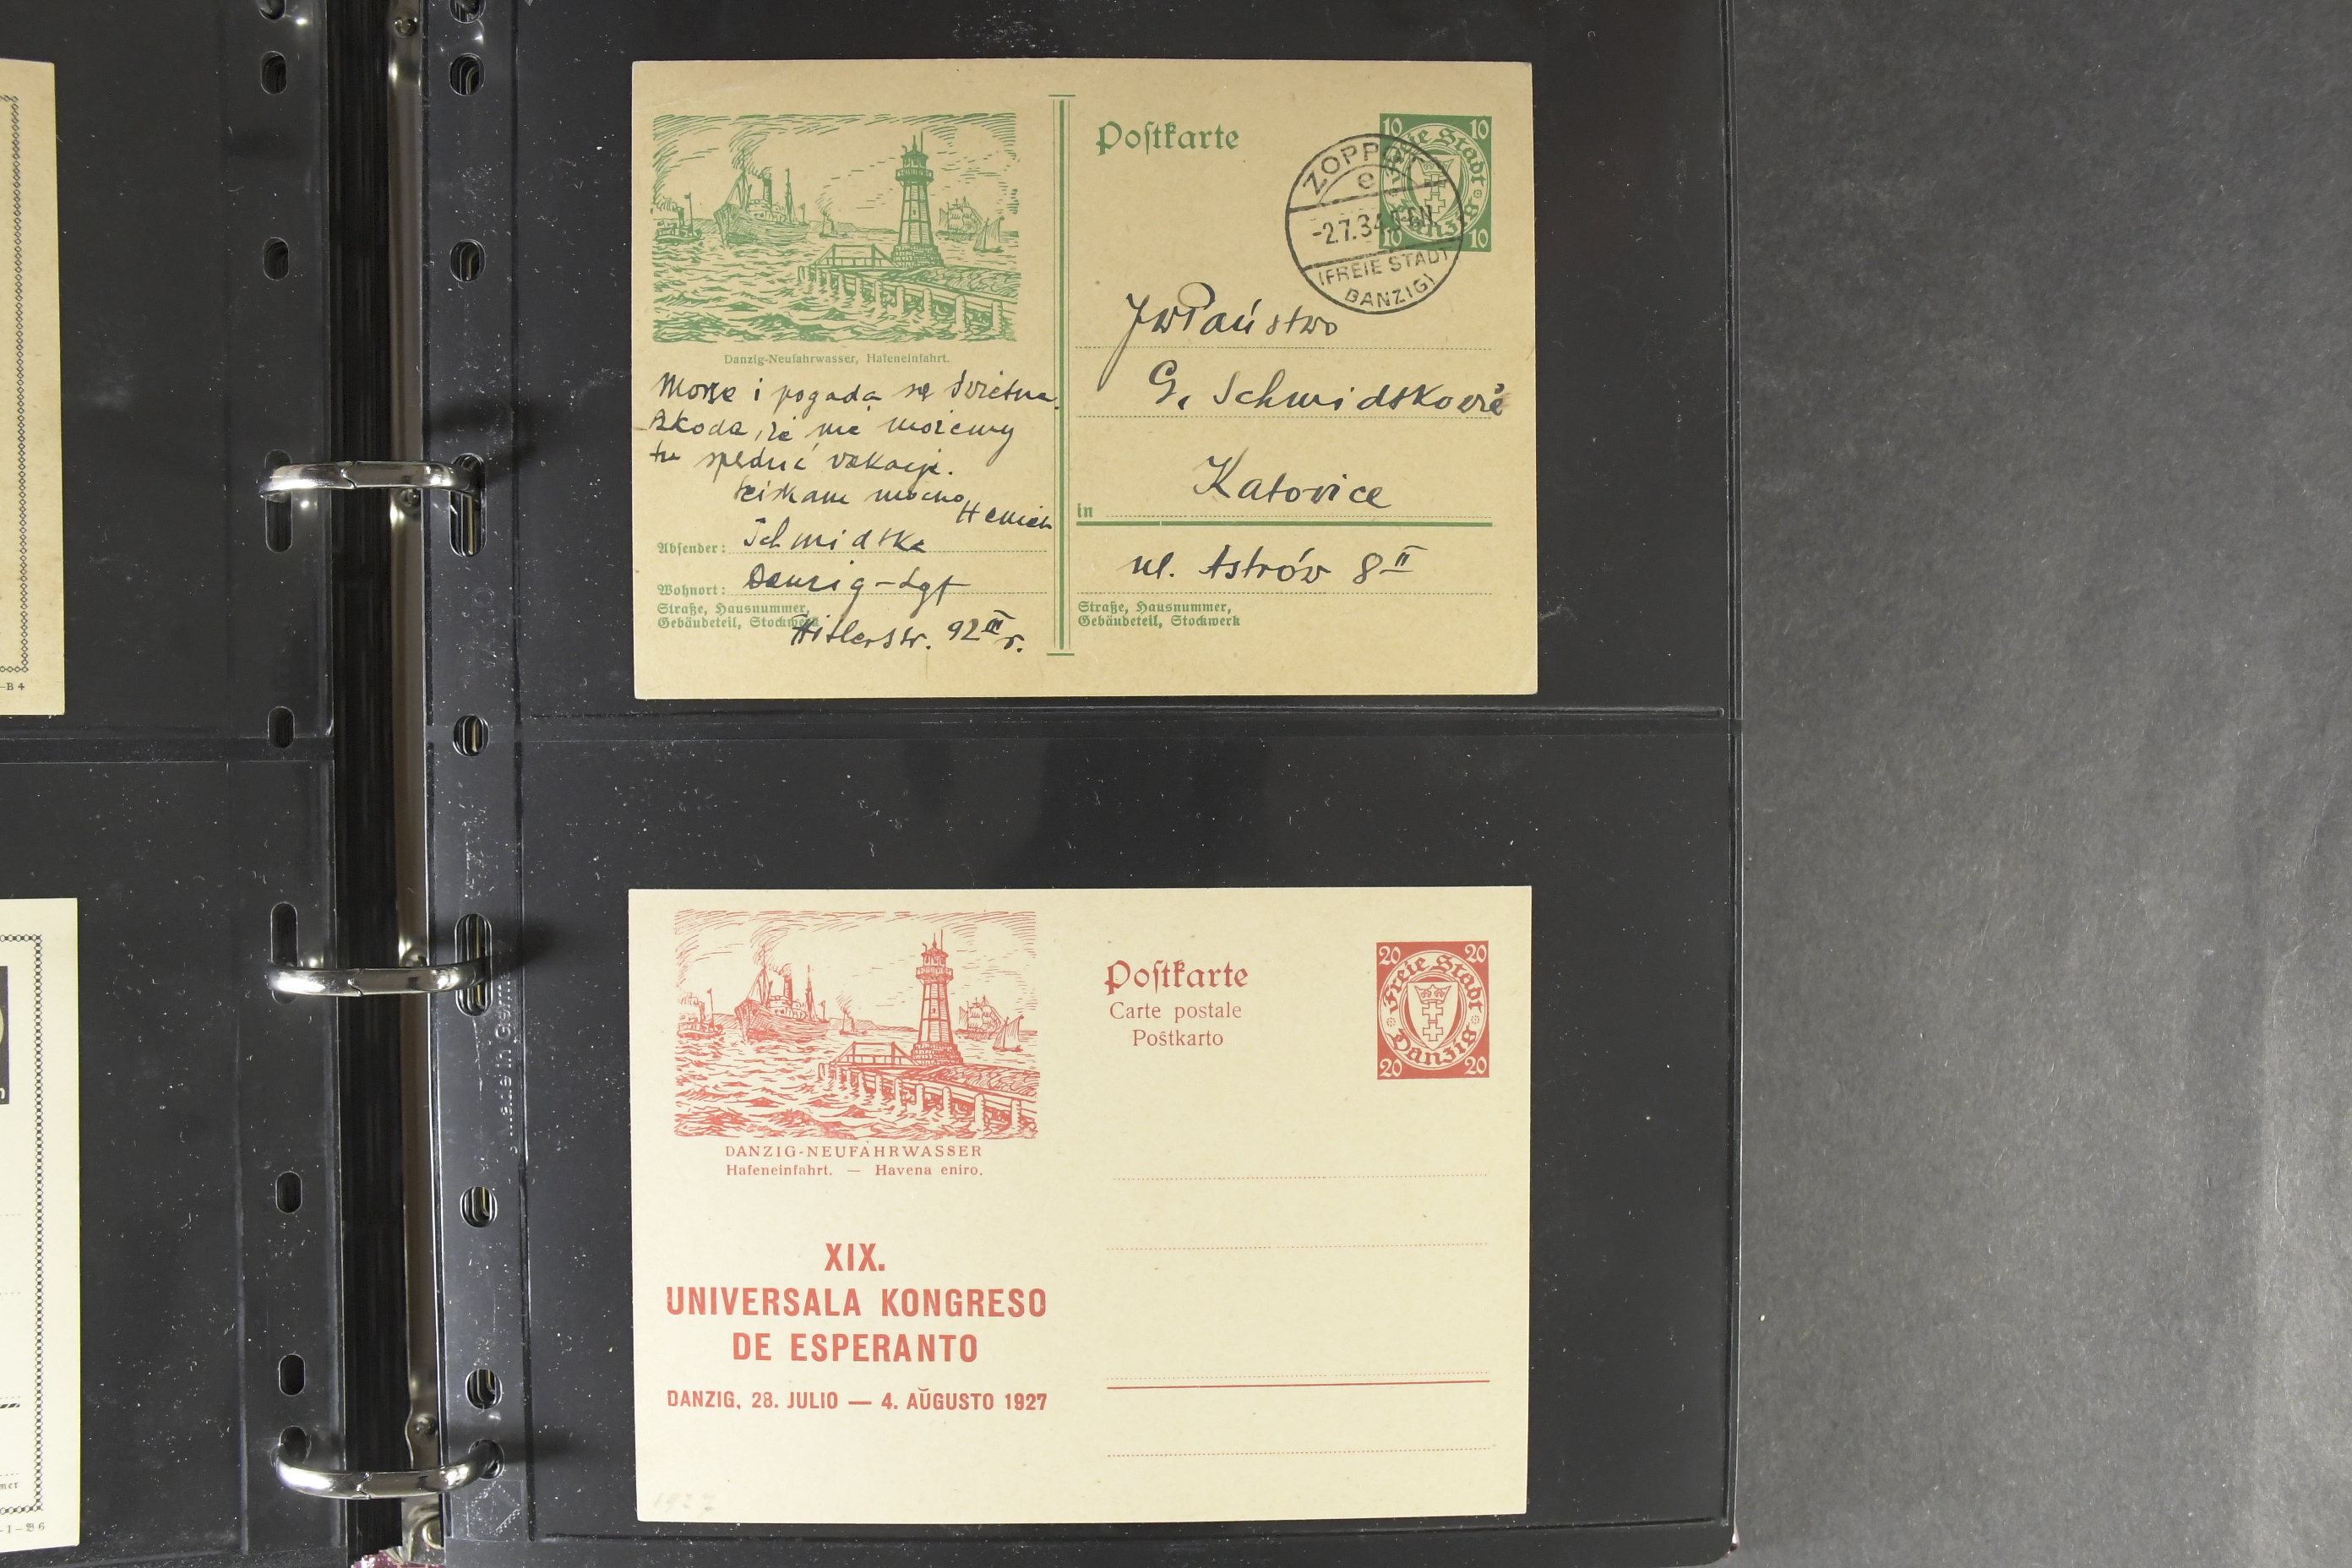 Danzig-Neufahrwasser, Hafeneinfahrt.
Morze i pogada są świetne.
Szkoda, że nie możemy
tu spędzić wakacje.
Ściskam mocno
Absender: Schmidtke
Wohnort: Danzig-Lgf
Straße, Hausnummer,
Gebäudeteil, Stockwerk
Hitlerstr. 92 III r.
Postkarte
10 10
Freie Stadt
10 10
ZOPPOT
e
-2.7.34
(FREIE STADT
DANZIG)
JWPaństwo
G. Schmidtkowie
in Katowice
ul. Astrów 8 II
Straße, Hausnummer,
Gebäudeteil, Stockwerk
DANZIG-NEUFAHRWASSER
Hafeneinfahrt. — Havena eniro.
XIX.
UNIVERSALA KONGRESO
DE ESPERANTO
DANZIG, 28. JULIO — 4. AŬGUSTO 1927
1927
Postkarte
Carte postale
Poŝtkarto
20 20
Freie Stadt
Danzig
20 20
-B 4
-1-B 6